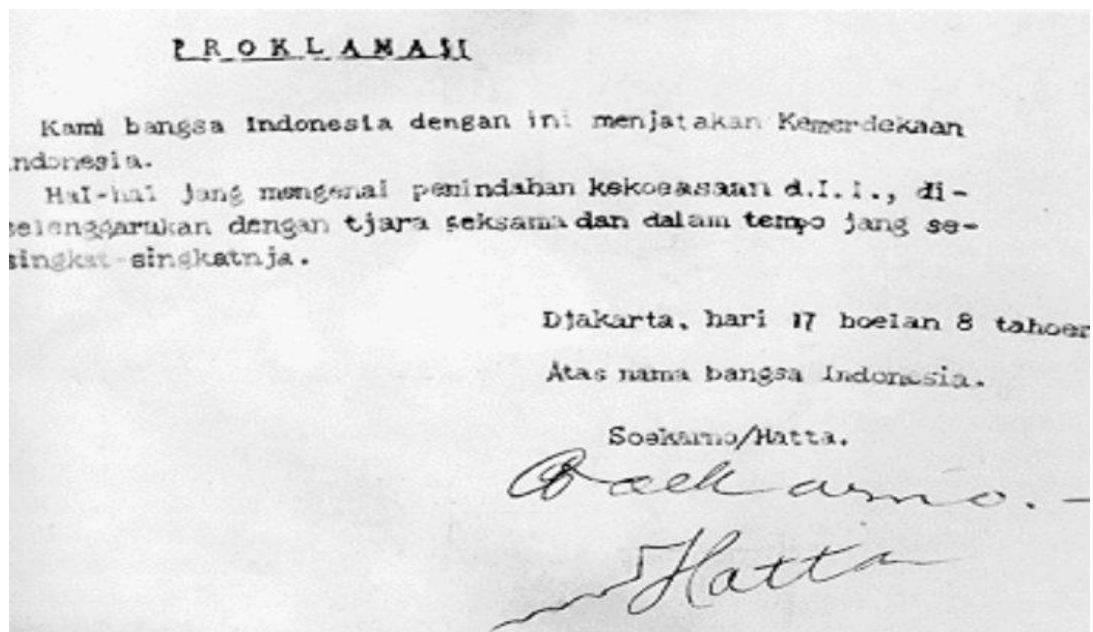 PROKLAMASI
Kami bangsa Indonesia dengan ini menjatakan Kemerdekaan
Indonesia.
Hal-hal jang mengenai pemindahan kekoeasaan d.l.l., di-
selenggarakan dengan tjara seksama dan dalam tempo jang se-
singkat-singkatnja.
Djakarta, hari 17 boelan 8 tahoen
Atas nama bangsa Indonesia.
Soekarno/Hatta.
Soekarno.-
Hatta